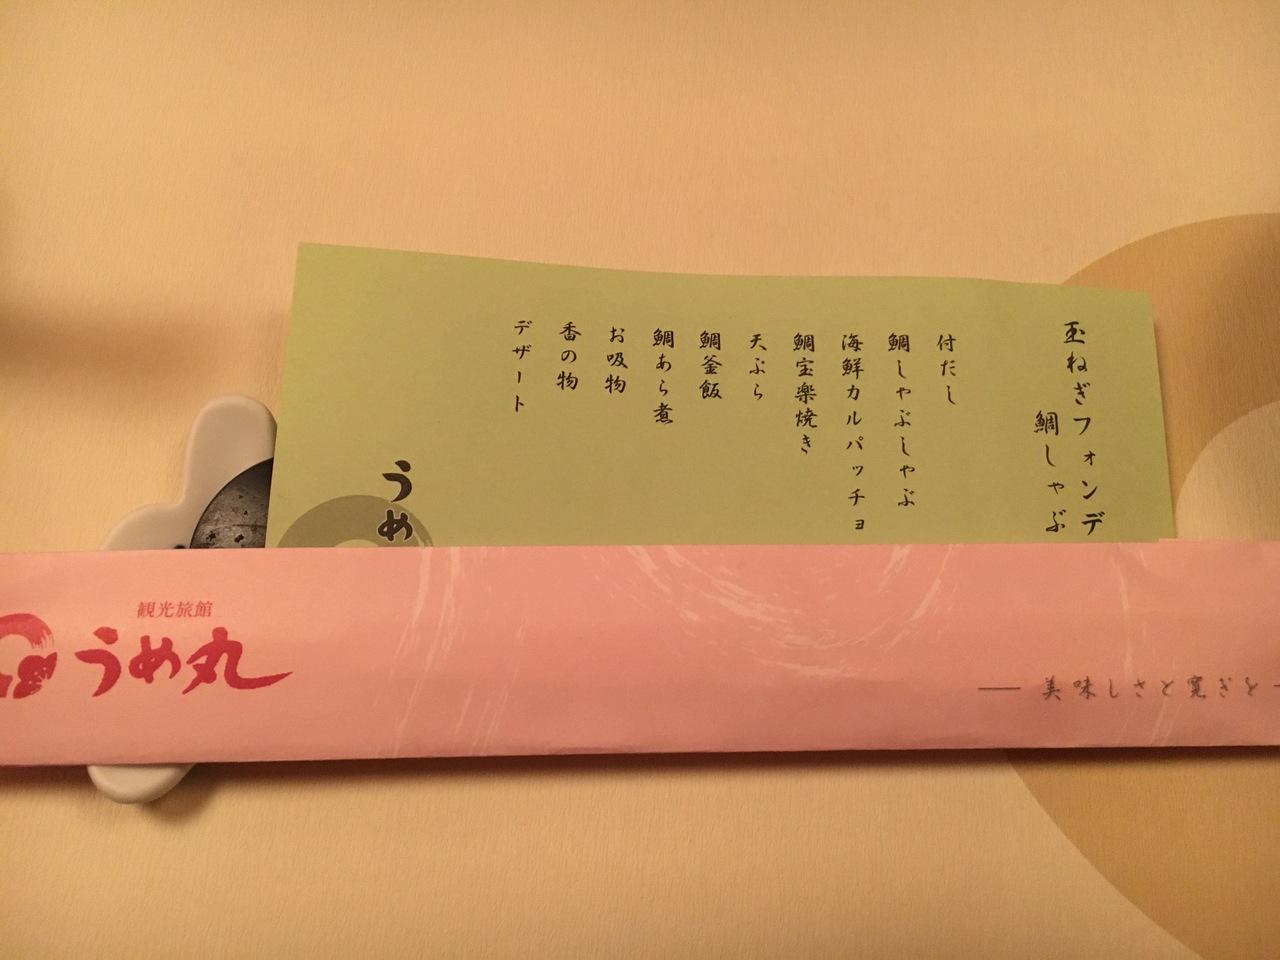 玉ねぎフォンデ
鯛しゃぶ
付だし
鯛しゃぶしゃぶ
海鮮カルパッチョ
鯛宝楽焼き
天ぷら
鯛釜飯
鯛あら煮
お吸物
香の物
デザート
うめ
観光旅館
うめ丸
― 美味しさと寛ぎを